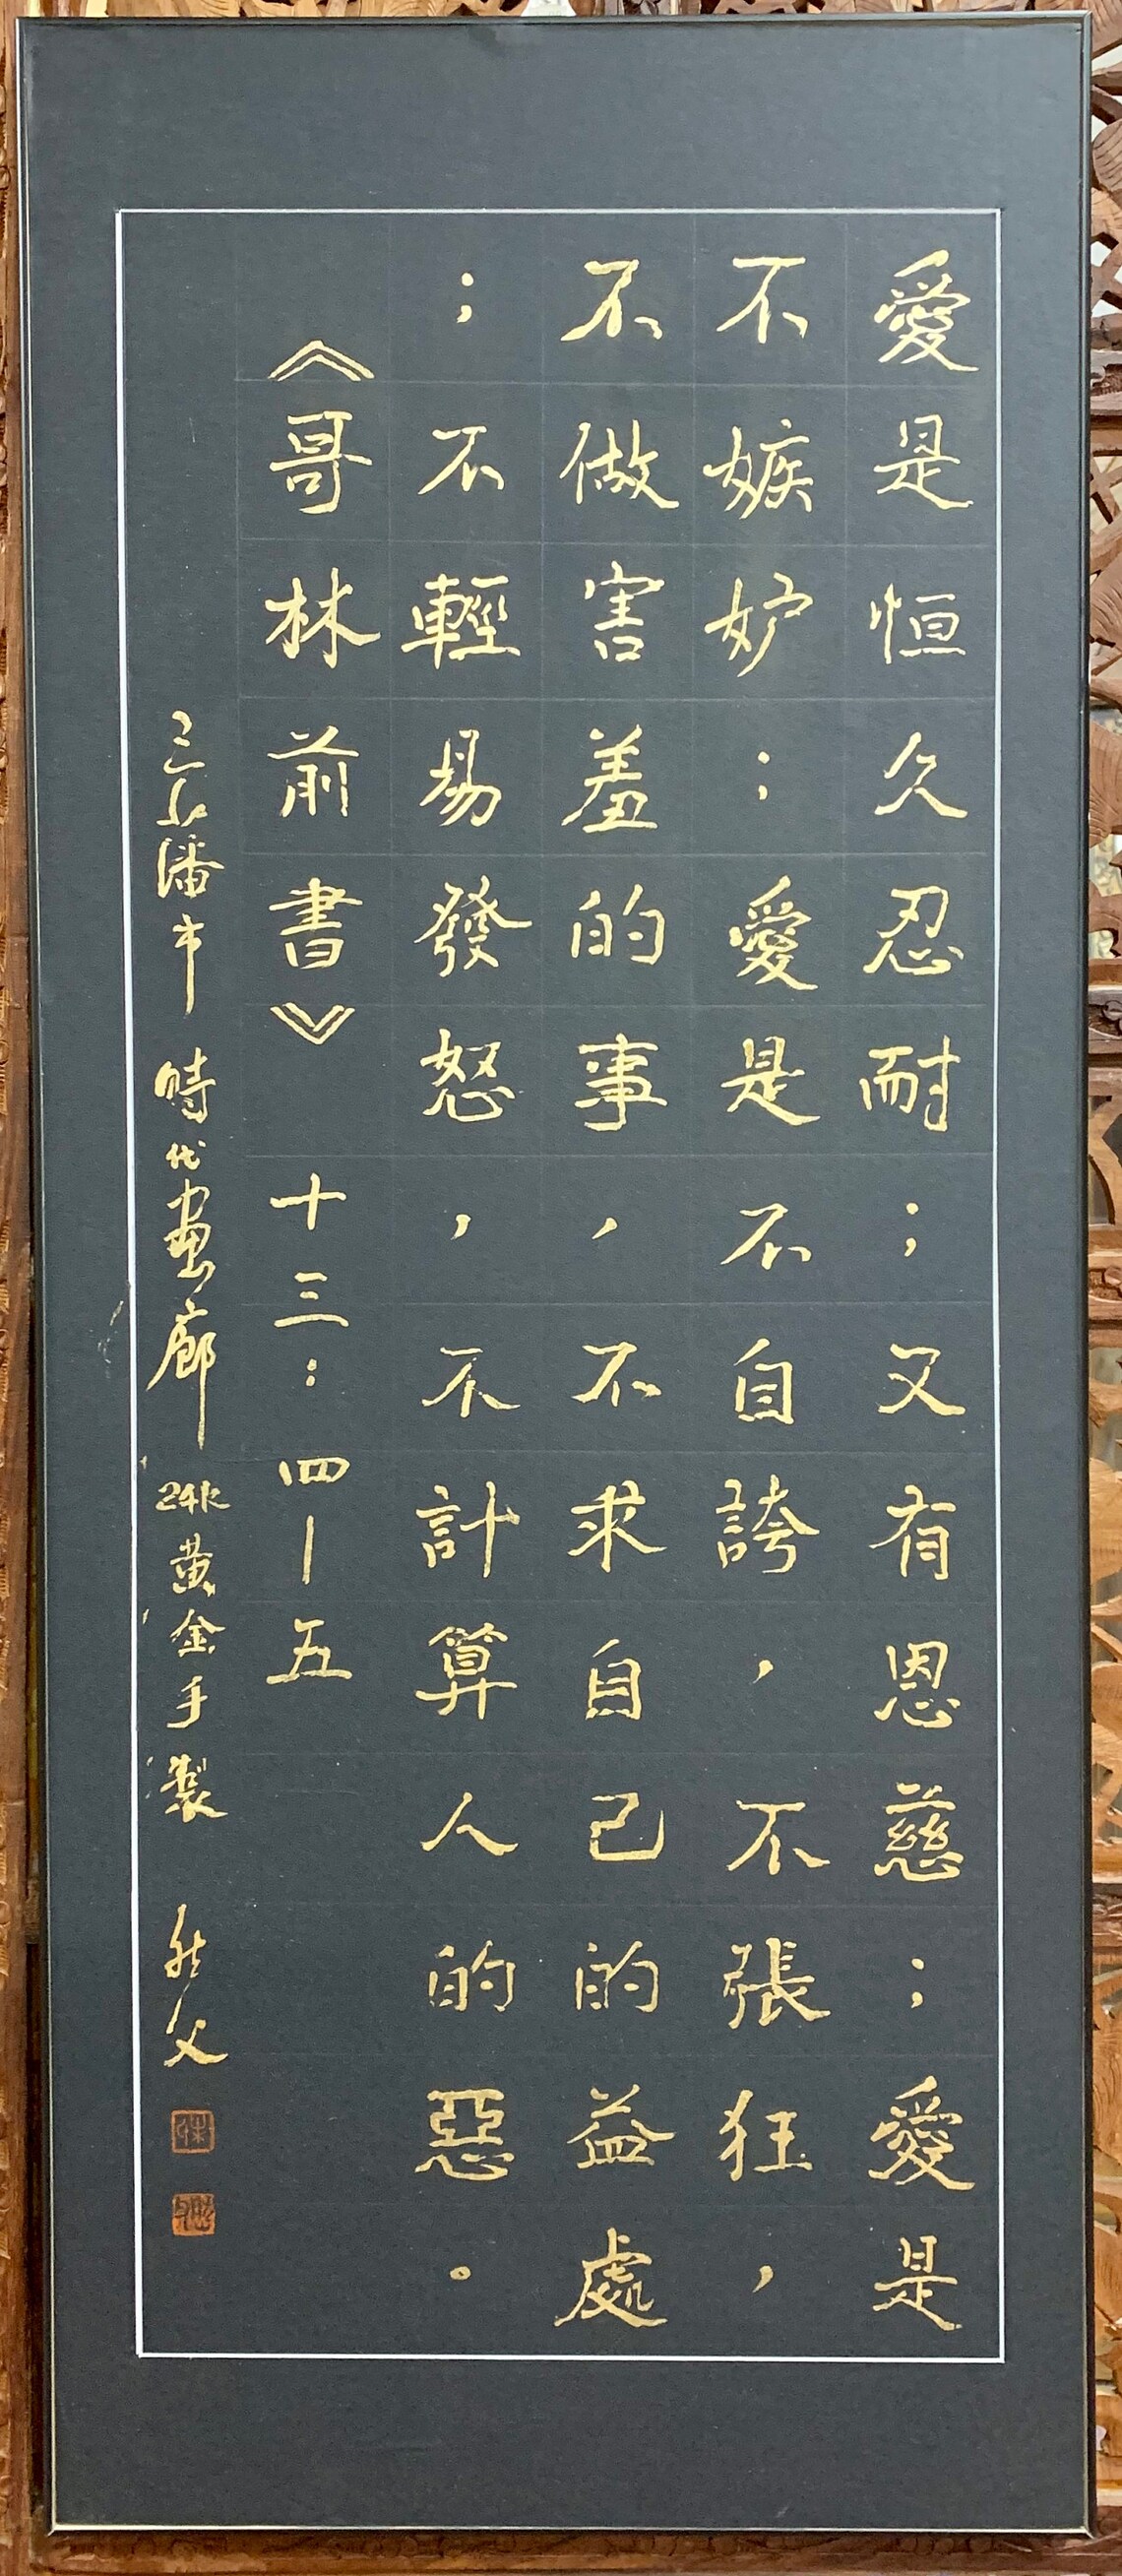 愛是恒久忍耐；又有恩慈；愛是
不嫉妒；愛是不自誇，不張狂，
不做害羞的事，不求自己的益處
；不輕易發怒，不計算人的惡。
《哥林前書》十三：四—五
三藩市 時代畫廊 24K黃金手製